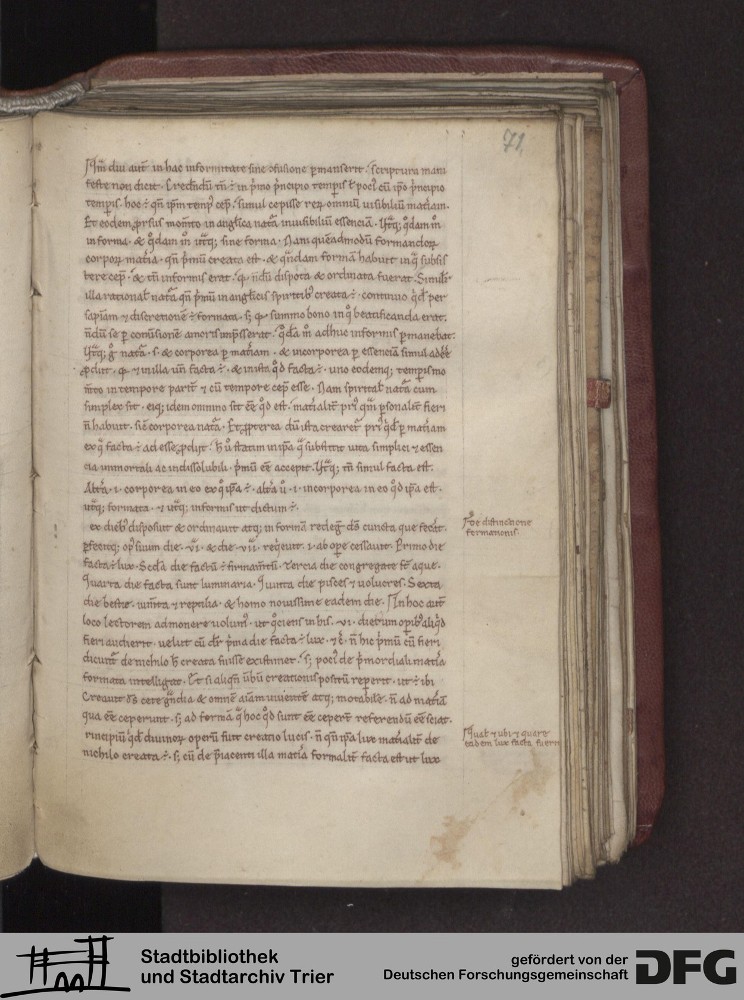 71
Qm̄ diu aut̄ in hac informitate sine ɔfusione ꝑmanserit. scriptura mani
feste non dicit. Credendū tn̄ ÷ in p̄mo p̄ncipio tempis t̄ poci cū ip̄o p̄ncipio
tempis. hoc ÷ qn̄ ip̄m temp' cep̄. simul cepisse rerꝝ omniū uisibiliū mat̄iam.
Et eodem prsus mom̄to in anglica nat̄a inuisibiliū essenciā.
in forma. & q̊dam m̊ utq; sine forma. Nam quēadmodū formandoꝝ
corpoꝝ mat̄ia. qn̄ p̄mū creata est. & quendam formā habuit in q̄ subsis
tere cep̄. & tn̄ informis erat. qͥ nōdū disposita & ordinata fuerat. Simil'
illa rational' nat̄a qn̄ p̄mū in anglicis spiritib; creata ÷. continuo qͥdē per
sapiam & discretionē ÷ formata. s; qͥ summo bono in q̊ beatificanda erat.
nōdū se ꝑ conūsionē amoris imp̄sserat. q̊dā m̊ adhuc informis ꝑmanebat.
nat̄a. s. & corporea ꝑ mat̄iam. & incorporea ꝑ essenciā simul ad ēē
ꝓdiit. qͥ & in illa un̄ facta ÷. & in ista q̊d facta ÷. uno eodemq; tempis mo
m̄to in tempore parit̄ & cū tempore cep̄ esse. Nam spirital' nat̄a cum
simplex sit. eiq; idem omnino sit ēē q̊d est. mat̄ialit̄ pri' qm̄ ꝑsonalit̄ fieri
n̄ habuit. sic̄ corporea nat̄a. Et ꝓpterea dū ista crearet̄ pri' qͥdē ꝑ mat̄iam
ex q̄ facta ÷ ad esse ꝓdiit. h̄ ů statim in ip̄a q̄ subsistit uita simplici & essen
cia immortali ac indissolubili. p̄mū ēē accepit. Utq; tn̄ simul facta est.
Alt̄a. i. corporea in eo ex q̊ ip̄a ÷. alt̄a ů. i. incorporea in eo q̊d ip̄a est.
utq; formata. & utq; informis ut dictum ÷.
ex dieb; disposuit & ordinauit atq; in formā redeḡ ds̄ cuncta que fecit.
ꝑfecitq; op' suum die. vi. & die. vii. req̄euit. i. ab oꝑe cessauit. Primo die
facta ÷ lux. Scd̄a die factū ÷ firmam̄tū. Tercia die congregate st̄ aque.
Quarta die facta sunt luminaria. Quinta die pisces & uolucres. Sexta
die bestie. ium̄ta & reptilia. & homo nouissime eadem die. In hoc aut̄
loco lectorem admonere volum'. ut qͦciens in his. vi. dierum oꝑib; aliqͥd
fieri audierit. uelut cū dr̄ p̄ma die facta ÷ lux. n̄ hic p̄mū cū fieri
dicunt̄ de nichilo h̄ creata fuisse existimet. s; poci' de p̄mordiali mat̄ia
formata intelligat. Et si aliqn̄ ūbū creationis positū repperit. ut ÷ ibi
Creauit ds̄ cete gͣndia & omnē aīam uiuentē atq; motabilē. n̄ ad mat̄iā
qua ēē ceperunt. s; ad formā q̄ hoc q̊d sunt ēē ceper̄t referendū ēē sciat.
rincipiū qͥdē diuinoꝝ operū fuit creatio lucis. n̄ qn̄ ip̄a lux mat̄ialit̄ de
nichilo creata ÷. s; cū de p̄iacenti illa mat̄ia formalit̄ facta est ut lux
De distinctione
formationis.
Qual' & ubi & quare
eadem lux facta fuerit
Stadtbibliothek
und Stadtarchiv Trier
gefördert von der
Deutschen Forschungsgemeinschaft
DFG